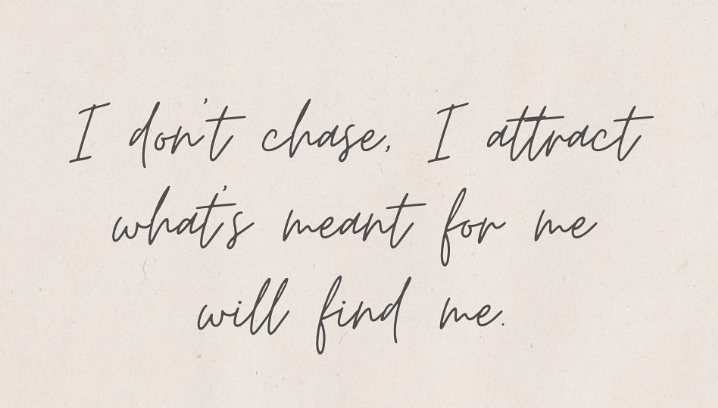 I don't chase, I attract
what's meant for me
will find me.